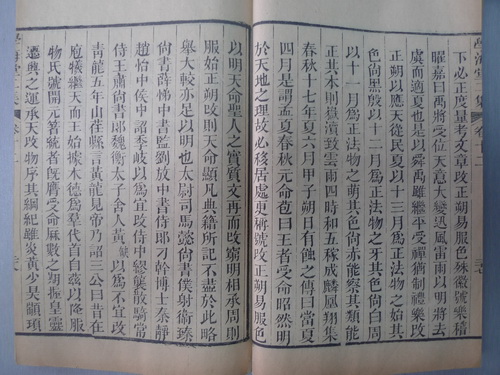 下必正度量考文章改正朔易服色殊徽號樂稽
曜嘉曰禹將受位天意大變迅風雷雨以明將去
虞而適夏也是以舜禹雖繼平受禪猶制禮樂改
正朔以應天從民夏以十三月為正法物之始其
色尚黑殷以十二月為正法物之牙其色尚白周
以十一月為正法物之萌其色尚赤能察其類能
正其本則嶽瀆致雲雨四時和五稼成麟鳳翔集
春秋十七年夏六月甲子朔日有蝕之傳曰當夏
四月是謂孟夏春秋元命苞曰王者受命昭然明
於天地之理故必移居處更稱號改正朔易服色
以明天命聖人之實質文再而改窮明相承周則
服始正朔改則天命顯凡典籍所記不盡於此略
舉大較亦足以明也太尉司馬懿尚書僕射衛臻
尚書薛悌中書監劉放中書侍郎刁幹博士秦靜
趙怡中侯中詔季岐以為宜改侍中繆襲散騎常
侍王肅尚書郎魏衡太子舍人黃以為不宜改
青龍五年山茌縣言黃龍見帝乃詔三公曰昔在
庖犧繼天而王始據木德為羣代首自茲以降服
物氏號開元著統者既膺受命厤數之期握皇靈
遷興之運承天改物序其綱紀雖炎黃少昊顓頊